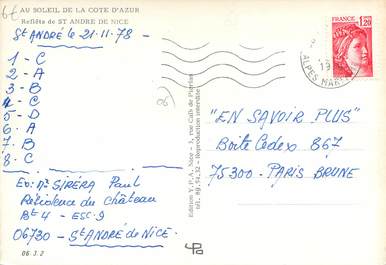 6f
AU SOLEIL DE LA COTE D'AZUR
Reflêts de ST ANDRE DE NICE
St ANDRÉ le 21-11-78-
1-C
2-A
3-B
4-C
5-D
6-A
7-B
8-C
Résidence du Château
Bt 4 - ESC. 9
06730 - St ANDRÉ de NICE.
06.3.2
(06)
Edition Y. P. A. Nice - 3, rue
- Reproduction interdite
FRANCE
1,20
19
ALPES MAR
"EN SAVOIR PLUS"
Boîte Cedex 867
75300 - PARIS BRUNE